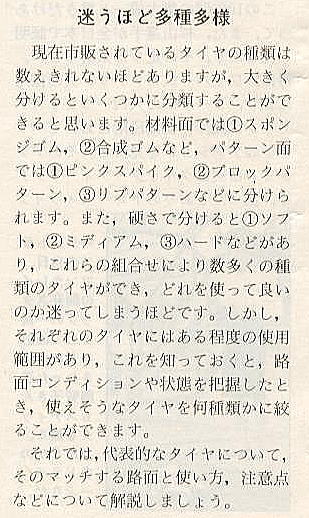 迷うほど多種多様
現在市販されているタイヤの種類は
数えきれないほどありますが，大きく
分けるといくつかに分類することがで
きると思います。材料面では①スポン
ジゴム，②合成ゴムなど，パターン面
では①ピンクスパイク，②ブロックパ
ターン，③リブパターンなどに分けら
れます。また，硬さで分けると①ソフ
ト，②ミディアム，③ハードなどがあ
り，これらの組合せにより数多くの種
類のタイヤができ，どれを使って良い
のか迷ってしまうほどです。しかし，
それぞれのタイヤにはある程度の使用
範囲があり，これを知っておくと，路
面コンディションや状態を把握したと
き，使えそうなタイヤを何種類かに絞
ることができます。
それでは，代表的なタイヤについて，
そのマッチする路面と使い方，注意点
などについて解説しましょう。